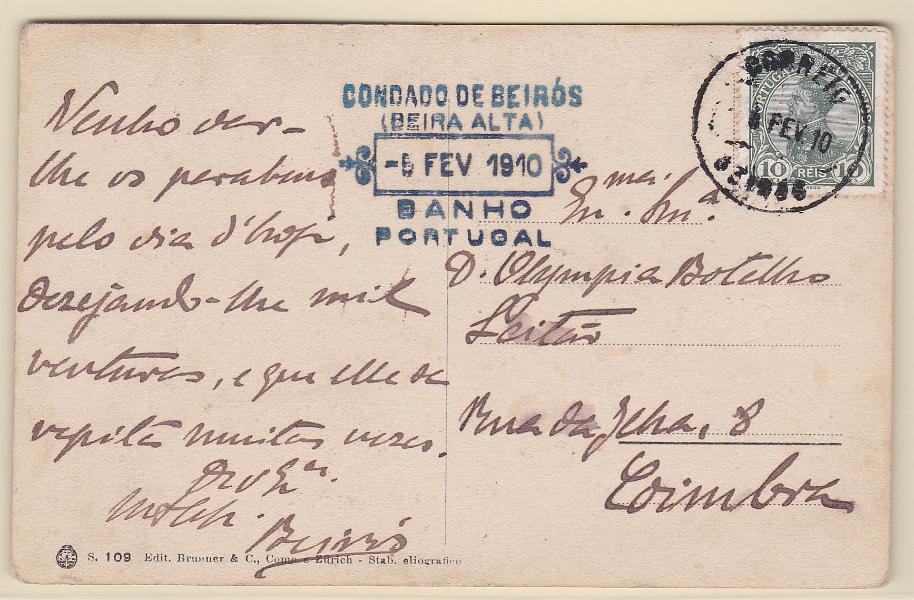 Venho dar-
lhe os parabens
pelo dia d'hoje,
desejando-lhe mil
venturas, e que elle se
repita muitas vezes.
Beirós
CONDADO DE BEIRÓS
(BEIRA ALTA)
FEV 1910
BANHO
PORTUGAL
CORREIO
FEV 10
PORTUGAL
10 REIS 10
D. Olympia Botelho
Leitão
Rua da Ilha, 8
Coimbra
S. 109 Edit. Brunner & C., Como e Zürich - Stab. eliografico